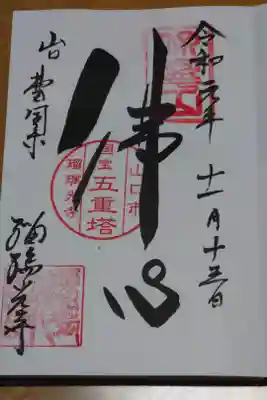 令和元年 十一月十日
佛心
山口市
国宝 五重塔
瑠璃光寺
山口
瑠璃光寺